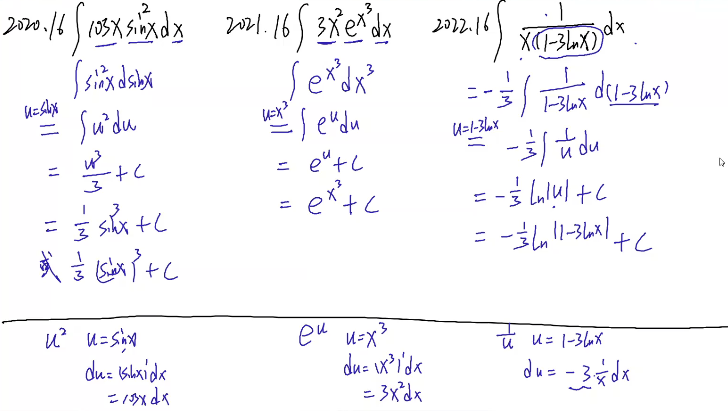 2020.16 ∫ cosx sin²x dx
∫ sin²x dsinx
u=sinx = ∫ u² du
= u³/3 + C
= 1/3 sin³x + C
或 1/3 (sinx)³ + C
2021.16 ∫ 3x² e^(x³) dx
∫ e^(x³) dx³
u=x³ = ∫ e^u du
= e^u + C
= e^(x³) + C
2022.16 ∫ 1/(x(1-3lnx)) dx
= -1/3 ∫ 1/(1-3lnx) d(1-3lnx)
u=1-3lnx = -1/3 ∫ 1/u du
= -1/3 ln|u| + C
= -1/3 ln|1-3lnx| + C
u² u=sinx
du=(sinx)'dx
=cosx dx
e^u u=x³
du=(x³)'dx
=3x²dx
1/u u=1-3lnx
du=-3·1/x dx